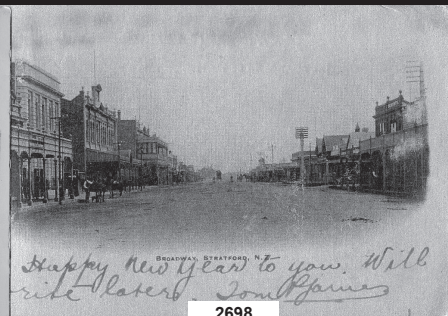 BROADWAY, STRATFORD, N.Z.
Happy New Year to you. Will
rite later. Tom
2698